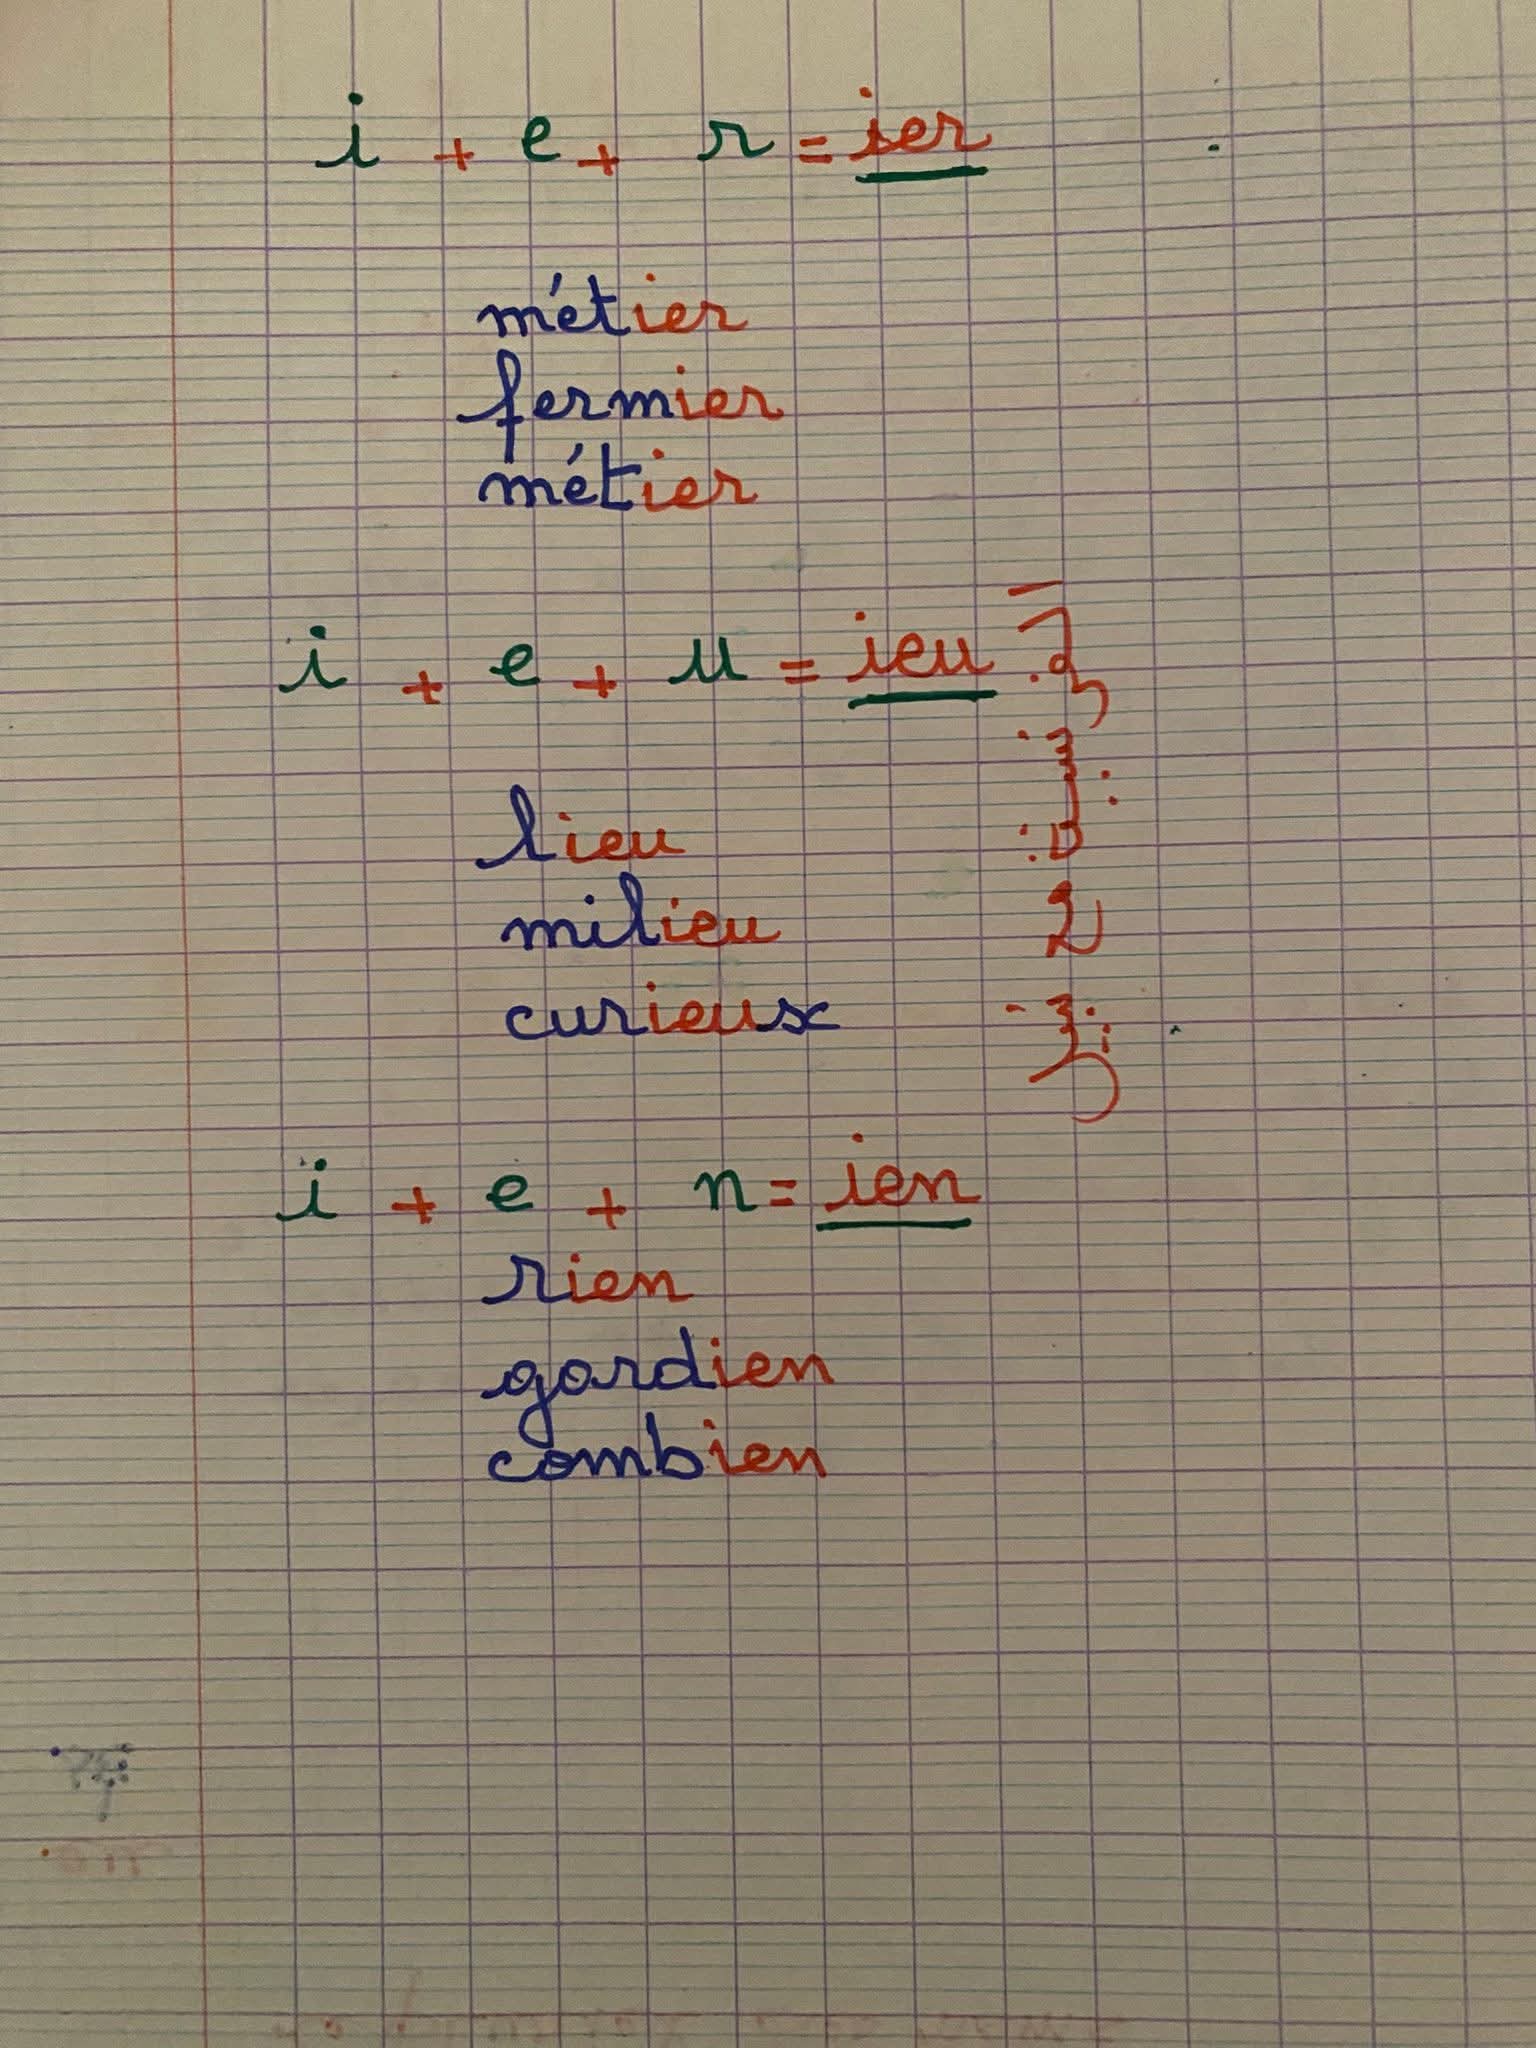 i + e + r = ier
métier
fermier
métier
i + e + u = ieu
lieu
milieu
curieux
i + e + n = ien
rien
gardien
combien